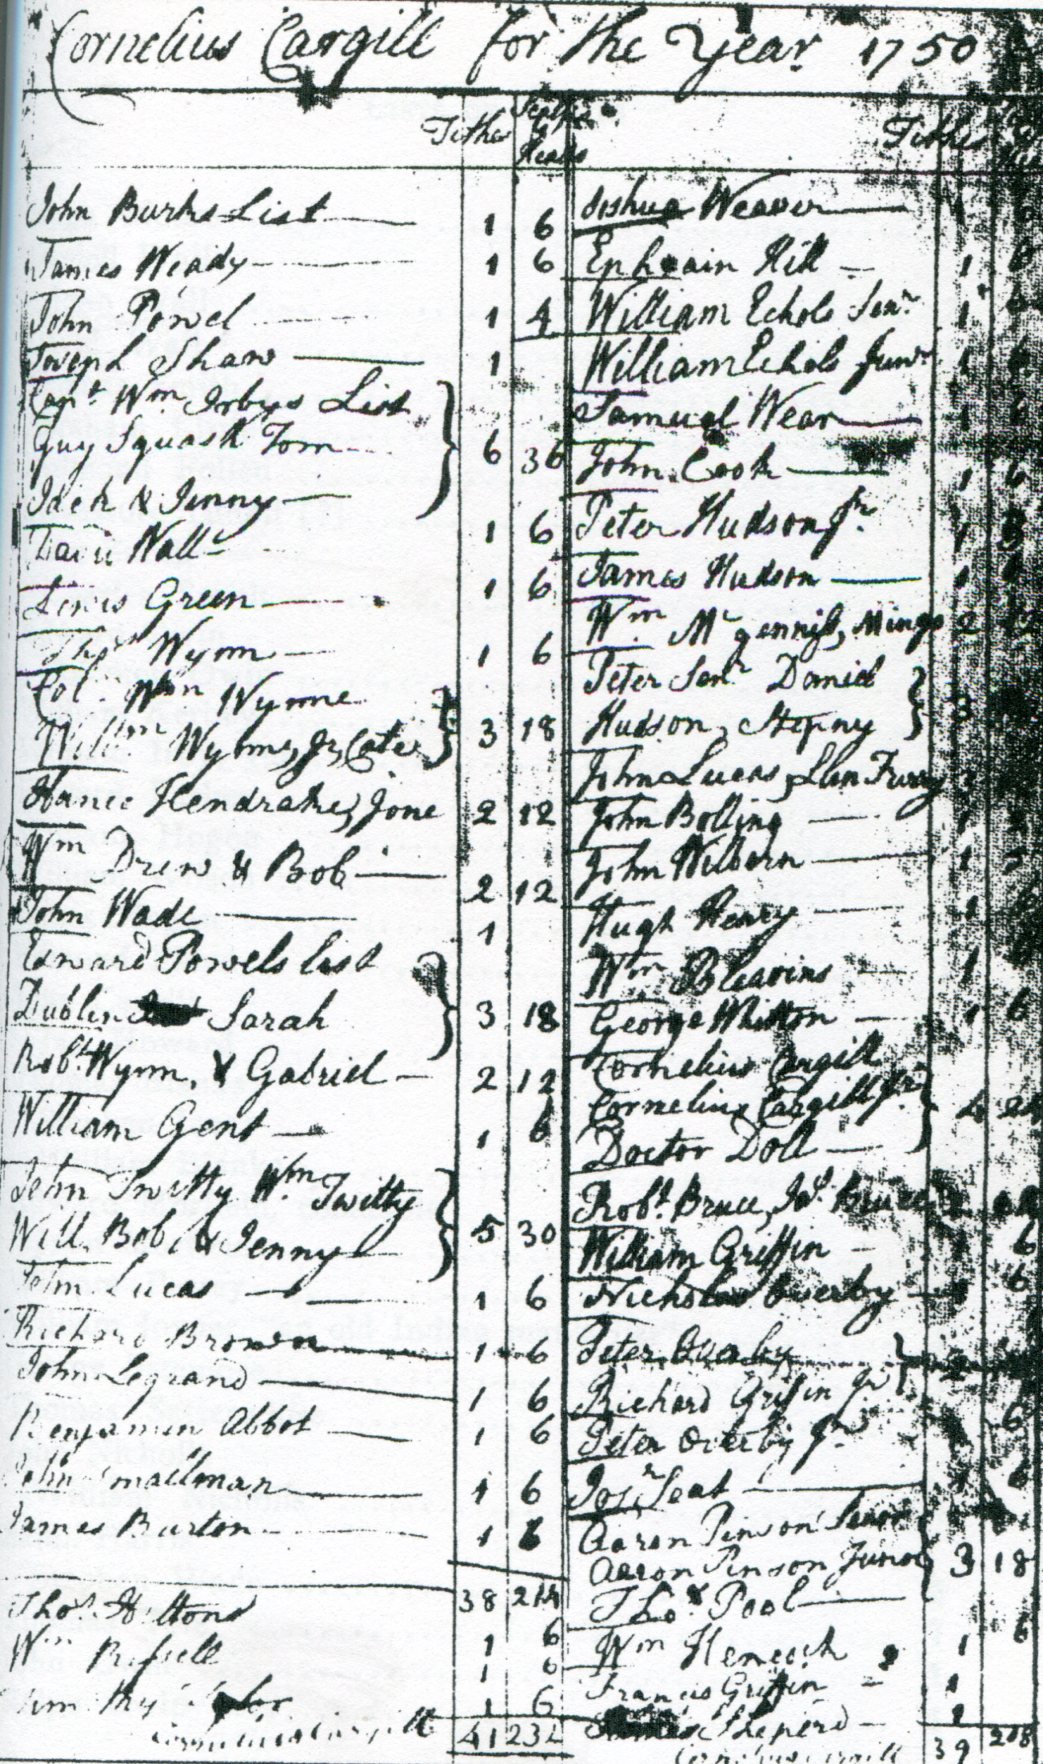 Cornelius Cargill for the Year 1750
Tithes
Heads
Tithes
John Burks List 1 6
James Weady 1 6
John Powel 1 4
Joseph Shaw 1
Capt Wm Irbys List
Guy Squash Tom 6 36
Jack & Jenny
David Wall 1 6
Lewis Green 1 6
Thos Wynn 1 6
Col Wm Wynne
Willm Wynne, Jr, Cate 3 18
Hance Hendrake, Jone 2 12
Wm Drew & Bob 2 12
John Wade 1
Edward Powels list
Dublin Sarah 3 18
Robt Wynn, & Gabriel 2 12
William Gent 1 6
John Twitty Wm Twitty
Will, Bob, & Jenny 5 30
John Lucas 1 6
Richard Brown 1 6
John Legrand 1 6
Benjamin Abbot 1 6
John Smallman 1 6
James Burton 1 6
38 214
Thos Hittons 1 6
Wm Russell 1 6
1 6
Cornelius Cargill 41 232
Joshua Weaver
Ephraim Hill 1
William Echols Senr 1
William Echols Junr 1
Samuel Wear 1
John Cook 1 6
Peter Hudson Jr 1
James Hudson 1
Wm Mingo 2 12
Peter Senr Daniel
Hudson, Stepny 3
John Lucas
John Bolling 1
John Wilborn 1
Hugh Henry 1
Wm Bleavins 1
George Whitton 1 6
Cornelius Cargill
Cornelius Cargill Jr 4 24
Doctor Doll
Robt Bruce, Bruce
William Griffin 6
Nicholas Overby 6
Peter Overby 2
Richard Grifin Jr
Peter Overby Jr 6
Jos Seat 1 6
Aaron Pinson Senor
Aaron Pinson Junor 3 18
Thos Pool
Wm Hencock 1 6
Francis Griffin 1
Sheperd 1
Cornelius Cargill 39 208